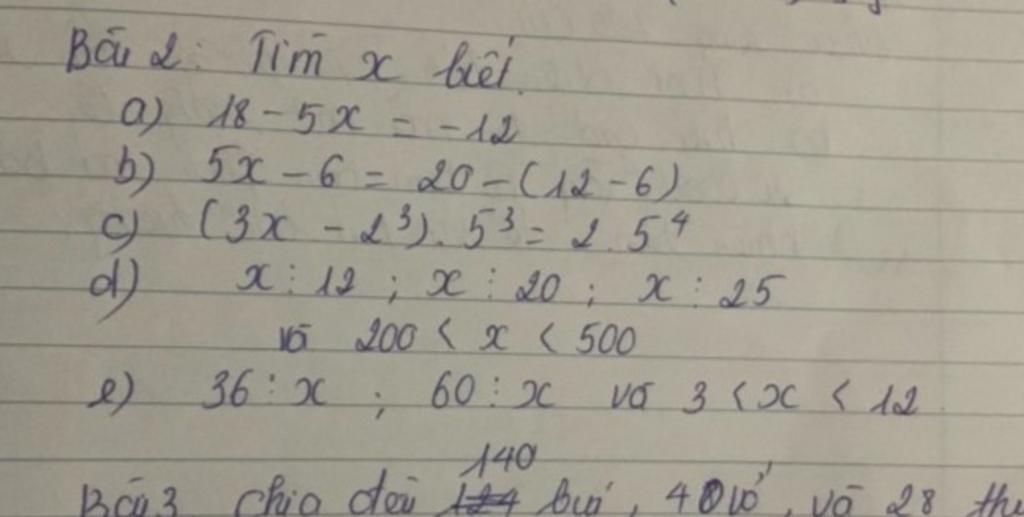 Bài 2: Tìm x biết.
a) 18 - 5x = -12
b) 5x - 6 = 20 - (12 - 6)
c) (3x - 2³). 5³ = 2. 5⁴
d) x ⋮ 12 ; x ⋮ 20 ; x ⋮ 25
và 200 < x < 500
e) 36 ⋮ x ; 60 ⋮ x và 3 < x < 12
140
Bài 3 chia đều bút, 40 vở, và 28